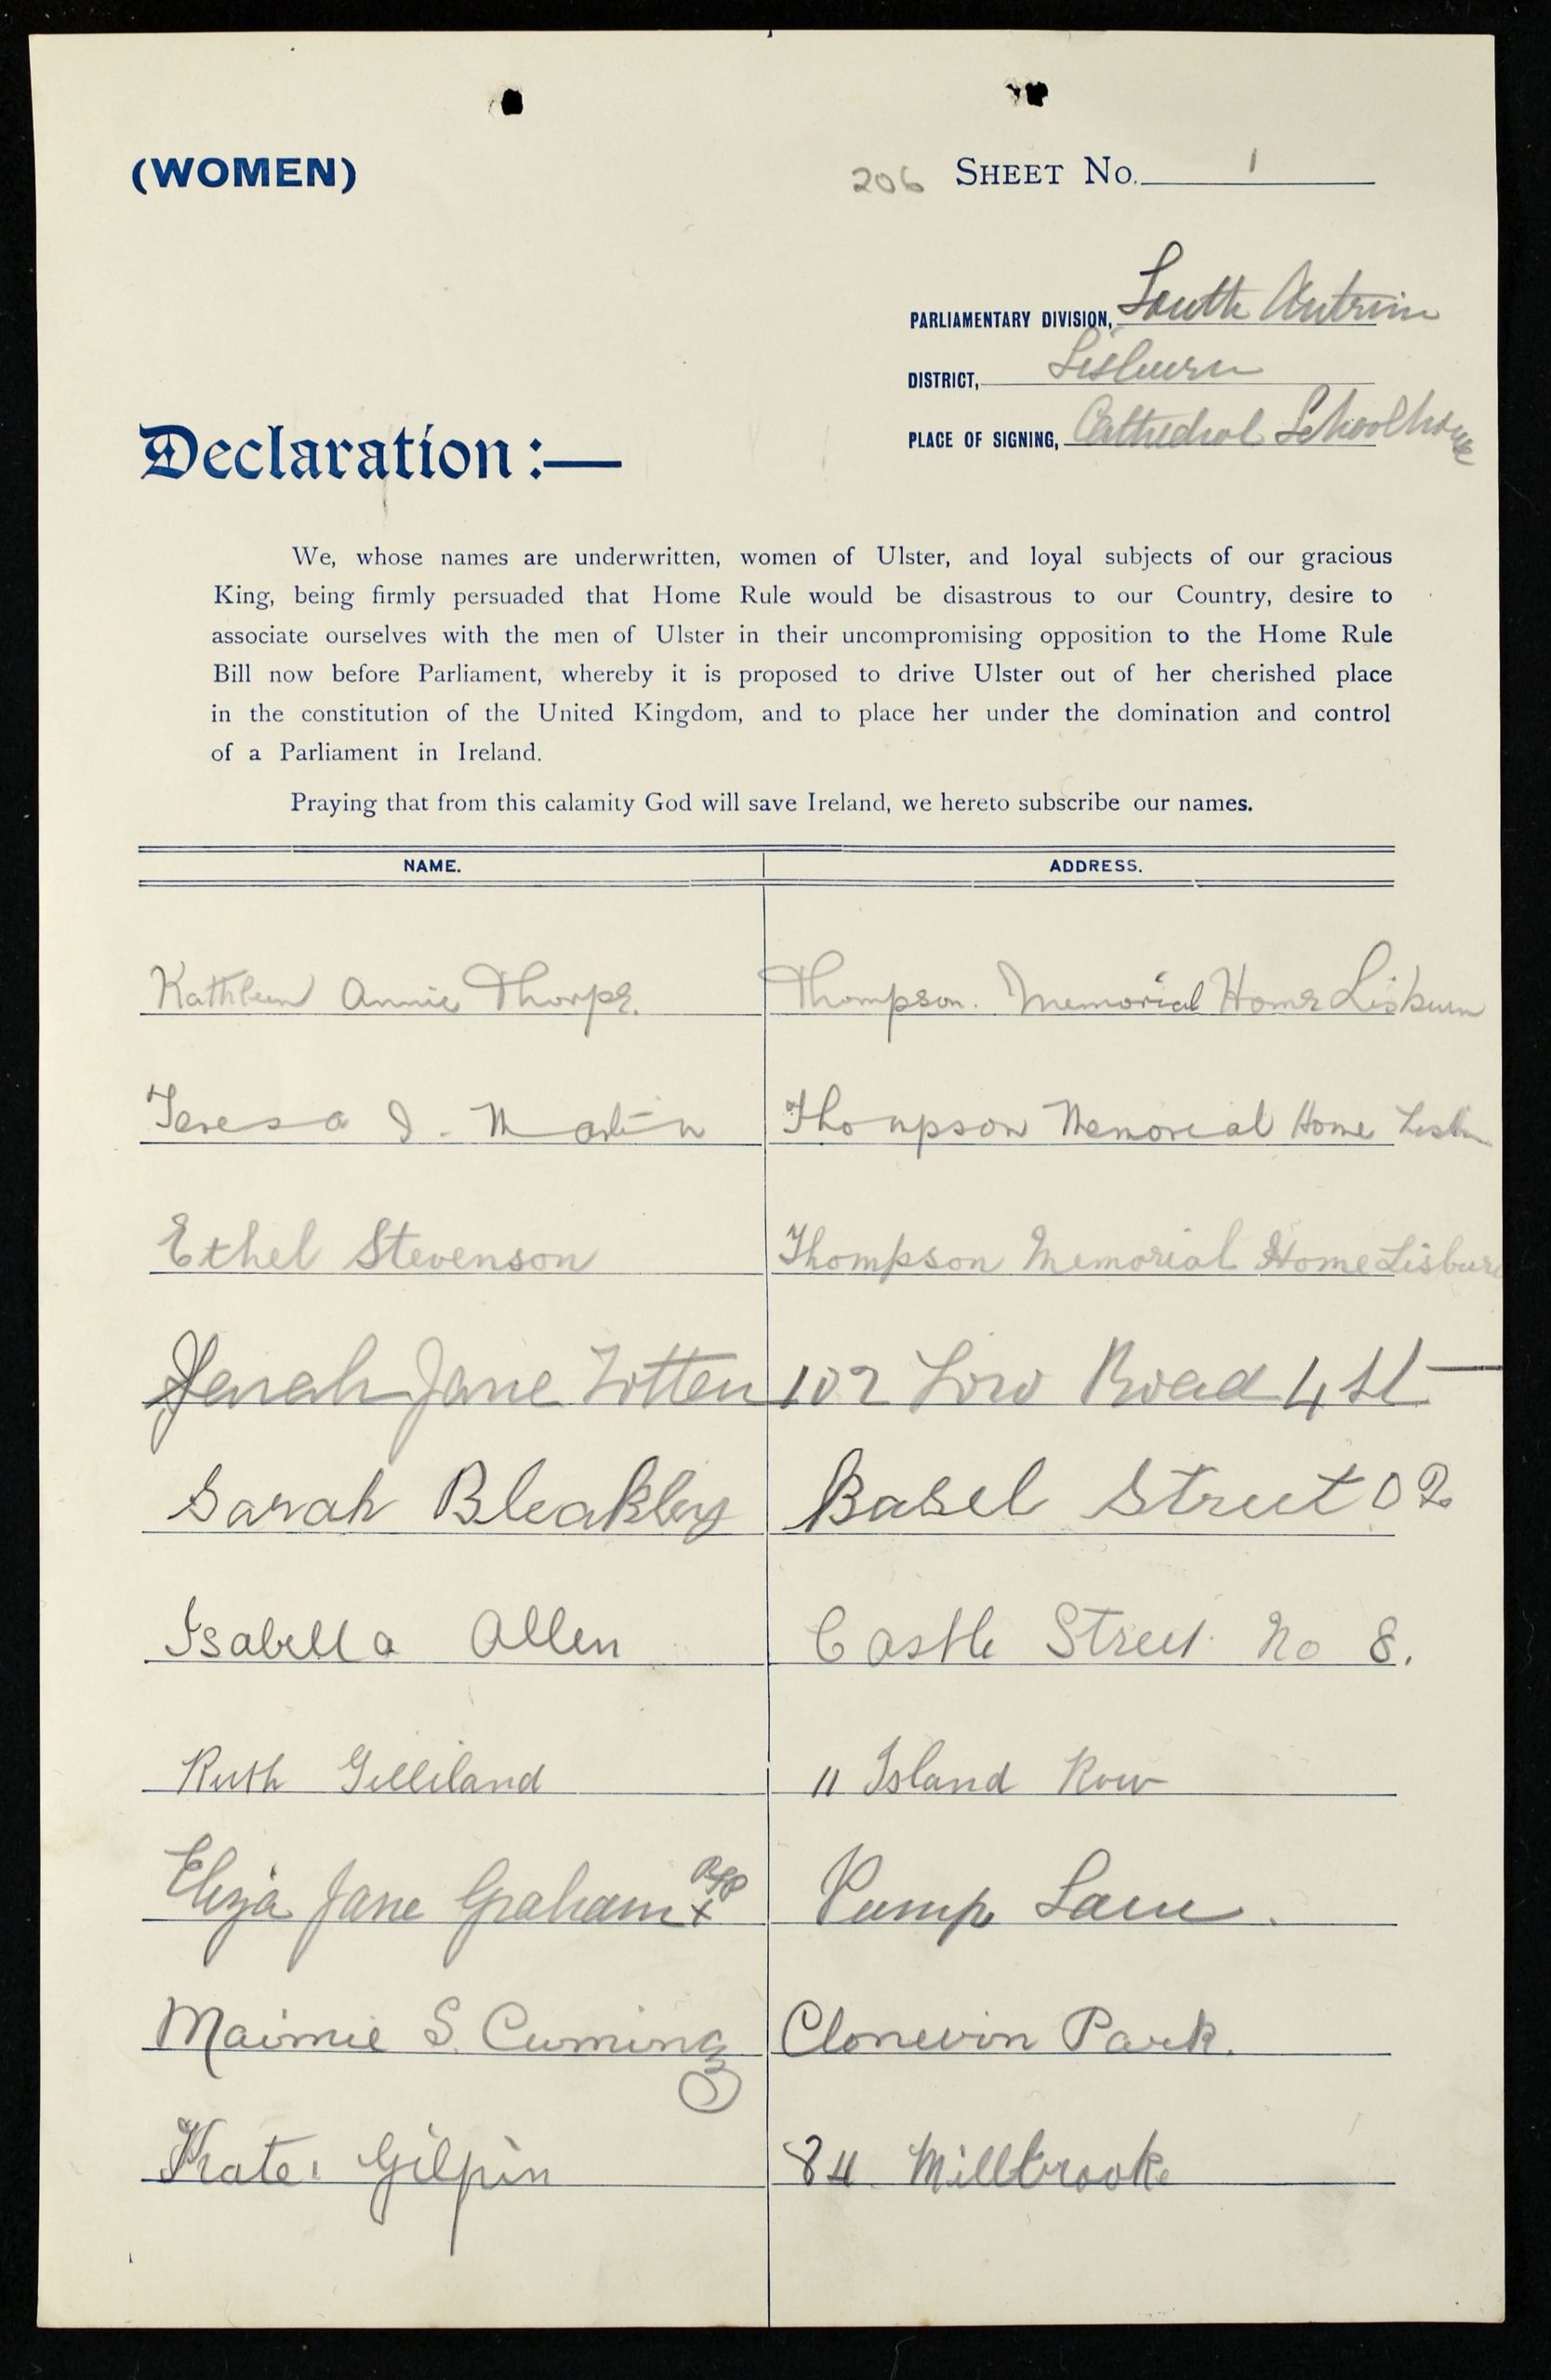 (WOMEN)
206 SHEET No. 1
PARLIAMENTARY DIVISION, South Antrim
DISTRICT, Lisburn
PLACE OF SIGNING, Cathedral Schoolhouse
Declaration:—
We, whose names are underwritten, women of Ulster, and loyal subjects of our gracious
King, being firmly persuaded that Home Rule would be disastrous to our Country, desire to
associate ourselves with the men of Ulster in their uncompromising opposition to the Home Rule
Bill now before Parliament, whereby it is proposed to drive Ulster out of her cherished place
in the constitution of the United Kingdom, and to place her under the domination and control
of a Parliament in Ireland.
Praying that from this calamity God will save Ireland, we hereto subscribe our names.
NAME. ADDRESS.
Kathleen Annie Thorpe. Thompson. Memorial Home Lisburn
Teresa J. Martin Thompson Memorial Home
Ethel Stevenson Thompson Memorial Home Lisburn
Sarah Jane Totten 102 Low Road
Sarah Bleakley Basel Street 02
Isabella Allen Castle Street No 8.
Ruth Gilliland 11 Island Row
Eliza Jane Graham x Pump Lane.
Maimie S. Cuming Clonevin Park.
Kate Gilpin 84 Millbrook